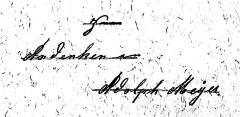 Andenken
Adolph Meyer